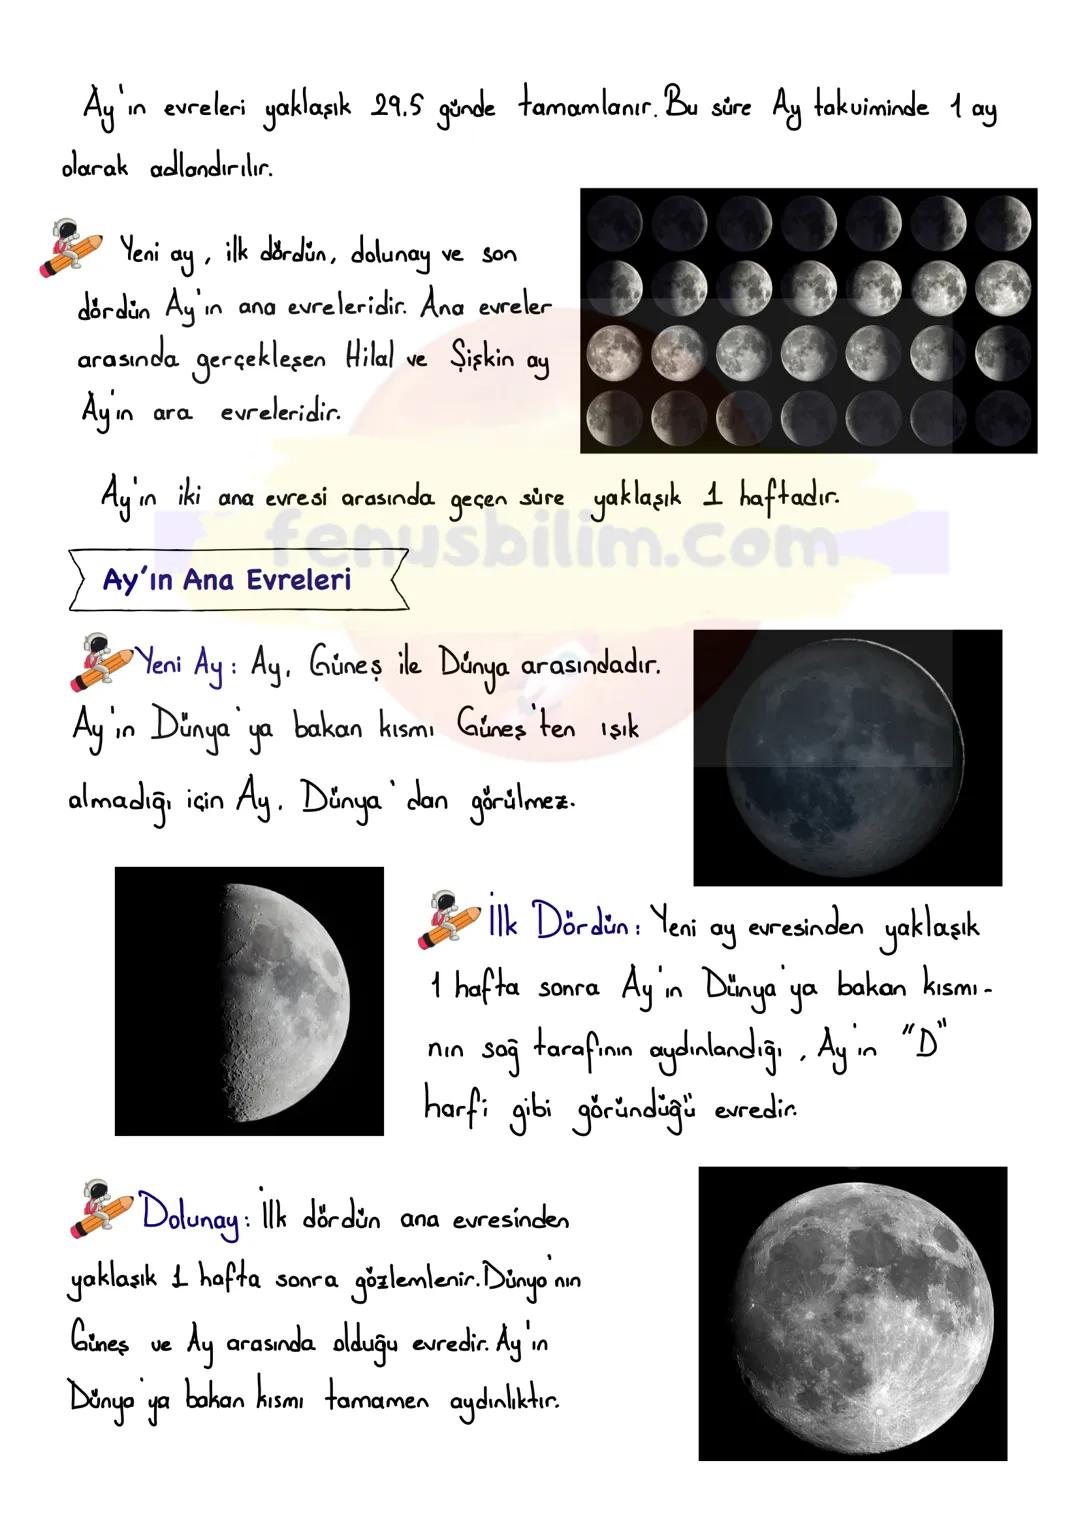 Ay'ın evreleri yaklaşık 29.5 günde tamamlanır. Bu süre Ay takviminde 1 ay
olarak adlandırılır.
Yeni ay, ilk dördün, dolunay ve son
dördün Ay'ın ana evreleridir. Ana evreler
arasında gerçekleşen Hilal ve Şişkin ay
Ay'ın ara evreleridir.
Ay'ın iki ana evresi arasında geçen süre yaklaşık 1 haftadır.
fenusbilim.com
Ay'ın Ana Evreleri
Yeni Ay: Ay, Güneş ile Dünya arasındadır.
Ay'ın Dünya'ya bakan kısmı Güneş'ten ışık
almadığı için Ay, Dünya'dan görülmez.
İlk Dördün: Yeni ay evresinden yaklaşık
1 hafta sonra Ay'ın Dünya'ya bakan kısmı-
nın sağ tarafının aydınlandığı, Ay'ın "D"
harfi gibi göründüğü evredir.
Dolunay: İlk dördün ana evresinden
yaklaşık 1 hafta sonra gözlemlenir. Dünya'nın
Güneş ve Ay arasında olduğu evredir. Ay'ın
Dünya'ya bakan kısmı tamamen aydınlıktır.